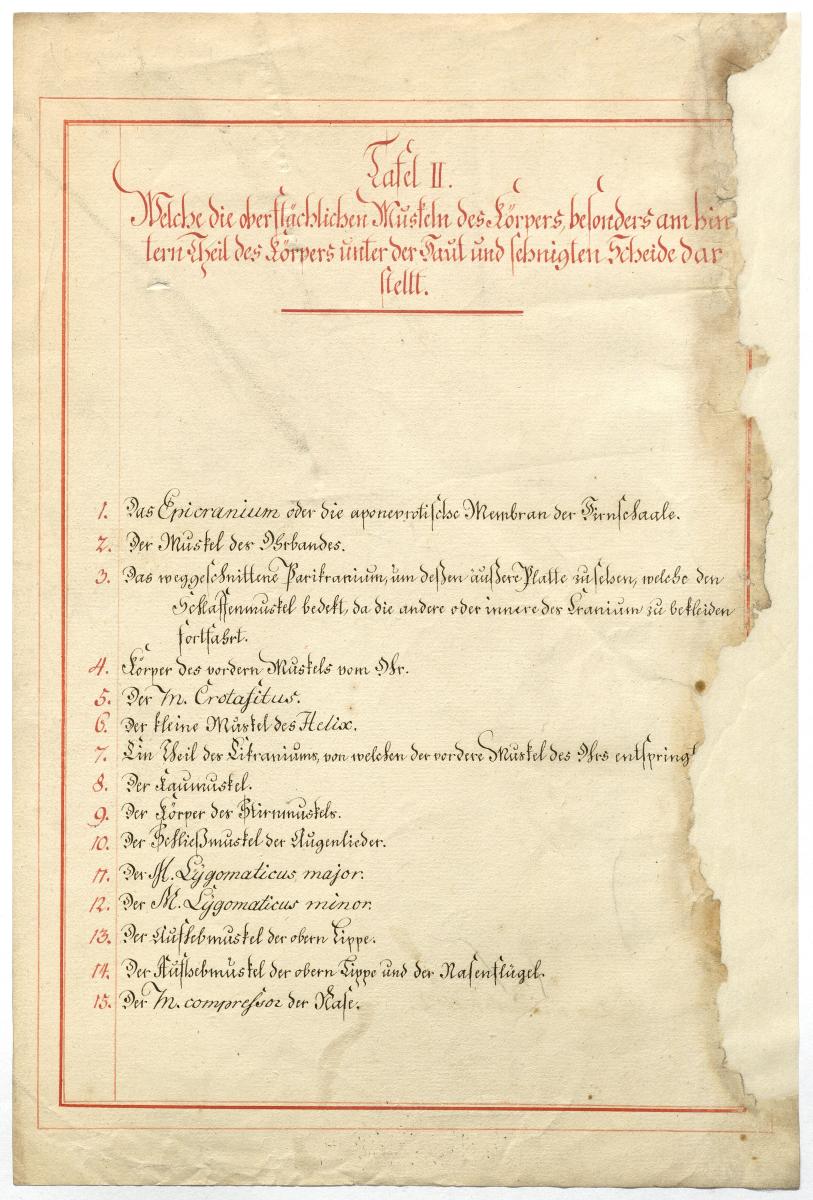 Tafel II.
Welche die oberflächlichen Muskeln des Körpers, besonders am hin
tern Theil des Körpers unter der Haut und sehnigten Scheide dar
stellt.
1. Das Epicranium oder die aponevrotische Membran der Hirnschaale.
2. Der Muskel des Ohrbandes.
3. Das weggeschnittene Perikranium, um deßen äußere Platte zu sehen, welche den
Schlaffenmuskel bedekt, da die andere oder innere des Cranium zu bekleiden
fortfährt.
4. Körper des vordern Muskels vom Ohr.
5. Der M. Crotafitus.
6. Der kleine Muskel des Helix.
7. Ein Theil des Epikraniums, von welchen der vordere Muskel des Ohrs entspringt
8. Der Kaumuskel.
9. Der Körper des Stirnmuskels.
10. Der Schließmuskel der Augenlieder.
11. Der M. Zÿgomaticus major.
12. Der M. Zÿgomaticus minor.
13. Der Aufhebmuskel der obern Lippe.
14. Der Aufhebmuskel der obern Lippe und der Nasenflügel.
15. Der M. compressor der Nase.